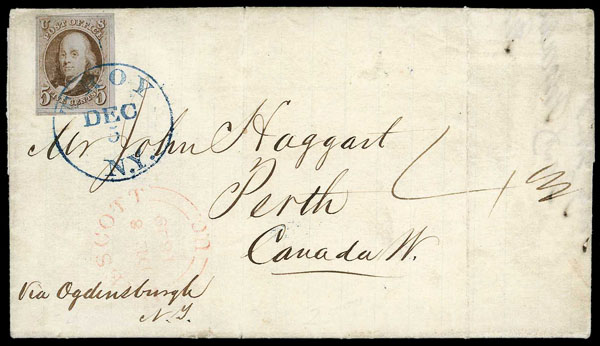 U S
POST OFFICE
5 FIVE CENTS 5
TROY
DEC
5
N.Y.
Mr John Haggart
Perth
Canada W.
PRESCOTT
8
Via Ogdensburgh
N.Y.